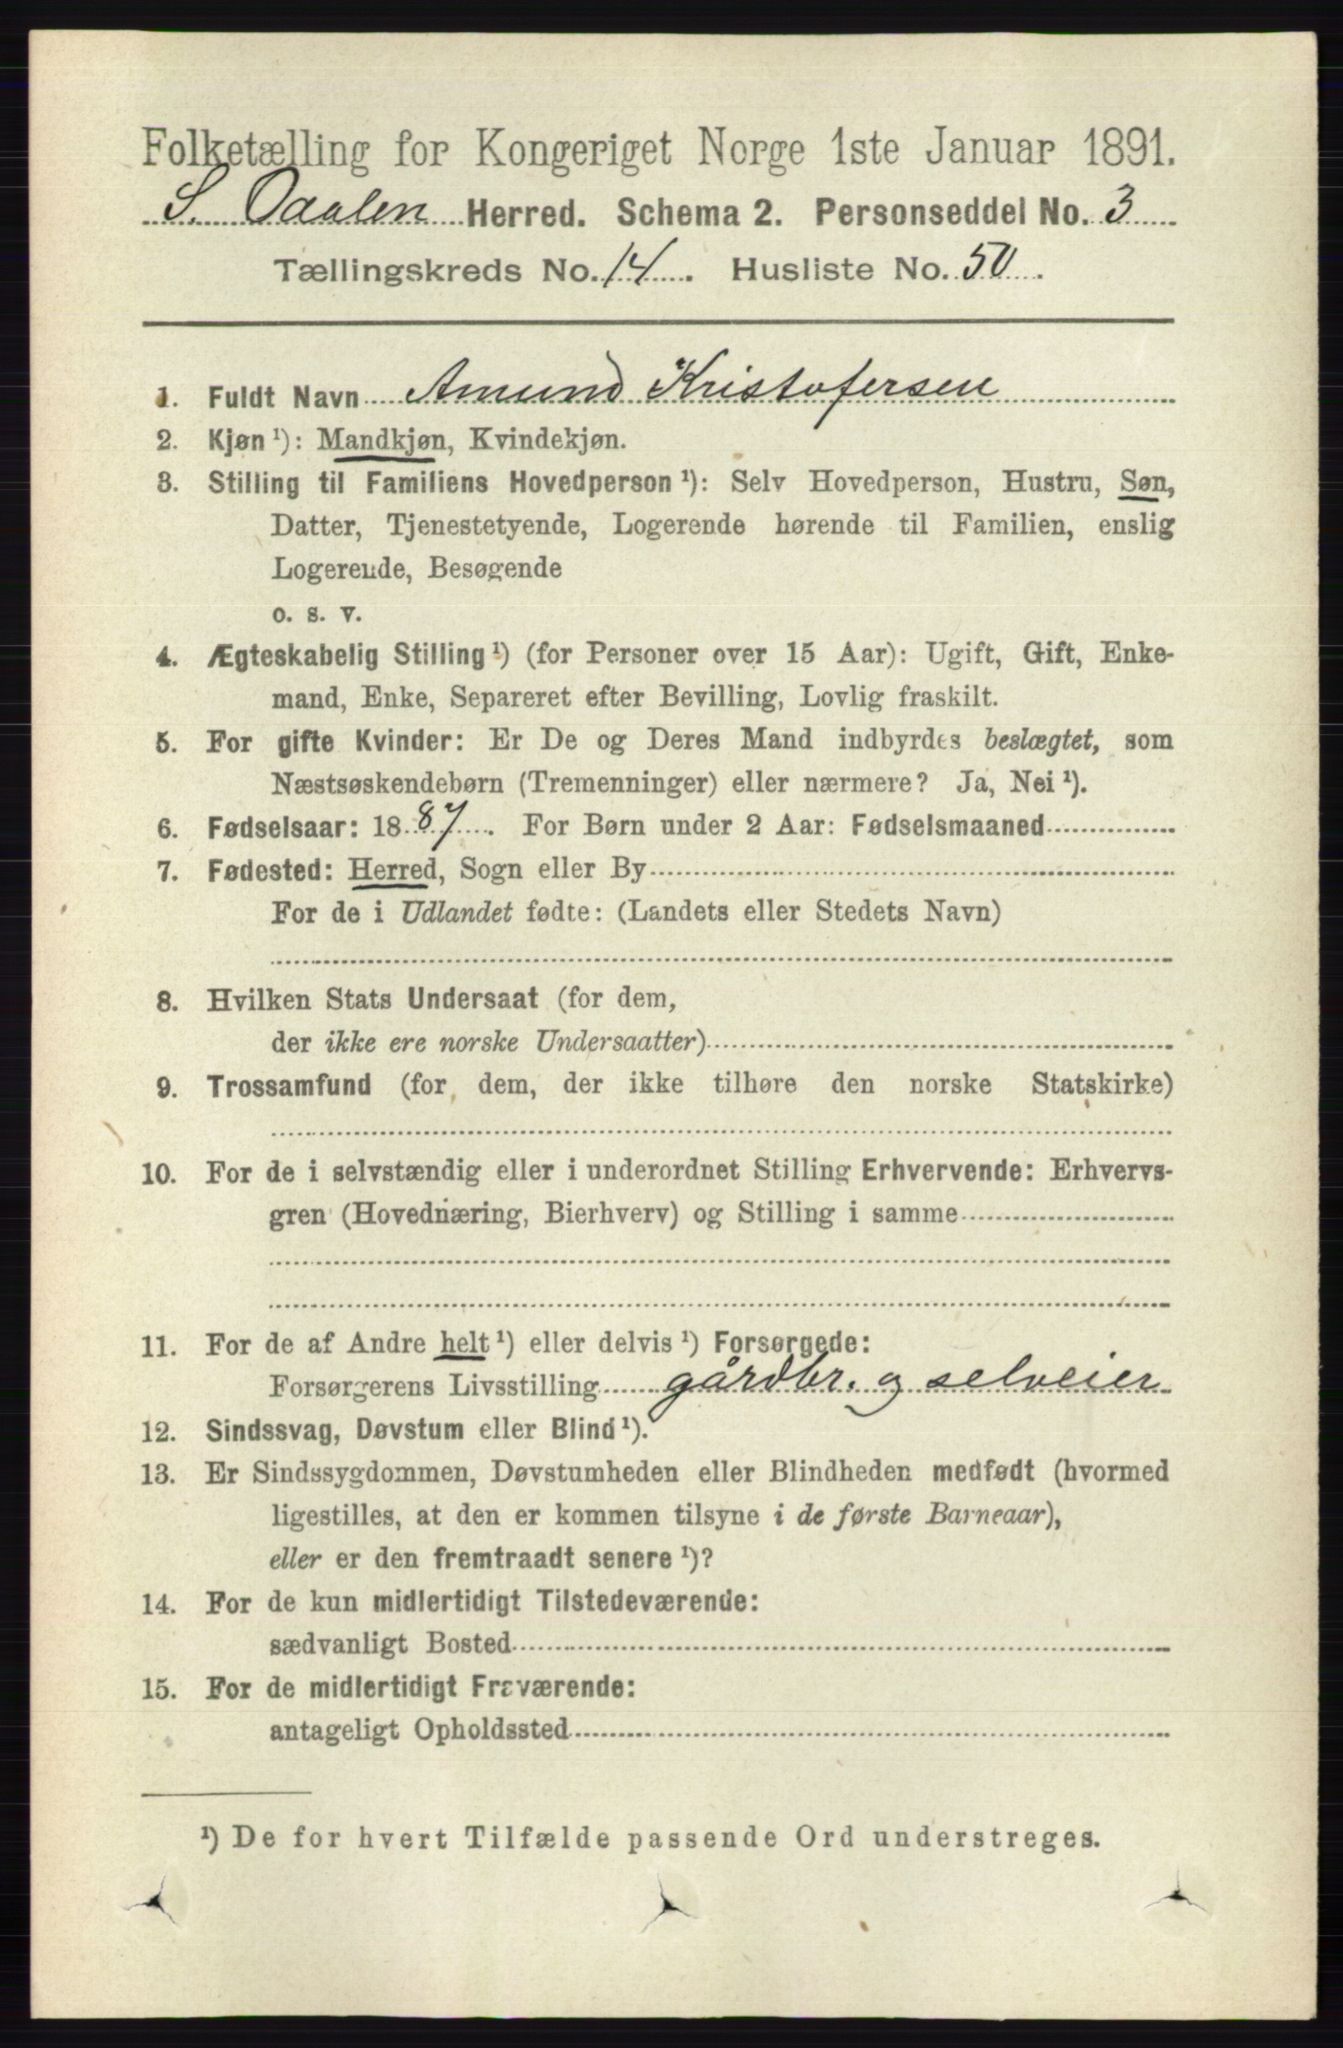 Folketælling for Kongeriget Norge 1ste Januar 1891.
S. Odalen Herred. Schema 2. Personseddel No. 3
Tællingskreds No. 14. Husliste No. 50.
1. Fuldt Navn Amund Kristofersen
2. Kjøn ¹): Mandkjøn, Kvindekjøn.
3. Stilling til Familiens Hovedperson ¹): Selv Hovedperson, Hustru, Søn,
Datter, Tjenestetyende, Logerende hørende til Familien, enslig
Logerende, Besøgende
o. s. v.
4. Ægteskabelig Stilling ¹) (for Personer over 15 Aar): Ugift, Gift, Enke-
mand, Enke, Separeret efter Bevilling, Lovlig fraskilt.
5. For gifte Kvinder: Er De og Deres Mand indbyrdes beslægtet, som
Næstsøskendebørn (Tremenninger) eller nærmere? Ja, Nei ¹).
6. Fødselsaar: 1887. For Børn under 2 Aar: Fødselsmaaned
7. Fødested: Herred, Sogn eller By
For de i Udlandet fødte: (Landets eller Stedets Navn)
8. Hvilken Stats Undersaat (for dem,
der ikke ere norske Undersaatter)
9. Trossamfund (for dem, der ikke tilhøre den norske Statskirke)
10. For de i selvstændig eller i underordnet Stilling Erhvervende: Erhvervs-
gren (Hovednæring, Bierhverv) og Stilling i samme
11. For de af Andre helt ¹) eller delvis ¹) Forsørgede:
Forsørgerens Livsstilling gårdbr. og selveier
12. Sindssvag, Døvstum eller Blind ¹).
13. Er Sindssygdommen, Døvstumheden eller Blindheden medfødt (hvormed
ligestilles, at den er kommen tilsyne i de første Barneaar),
eller er den fremtraadt senere ¹)?
14. For de kun midlertidigt Tilstedeværende:
sædvanligt Bosted
15. For de midlertidigt Fraværende:
antageligt Opholdssted
¹) De for hvert Tilfælde passende Ord understreges.